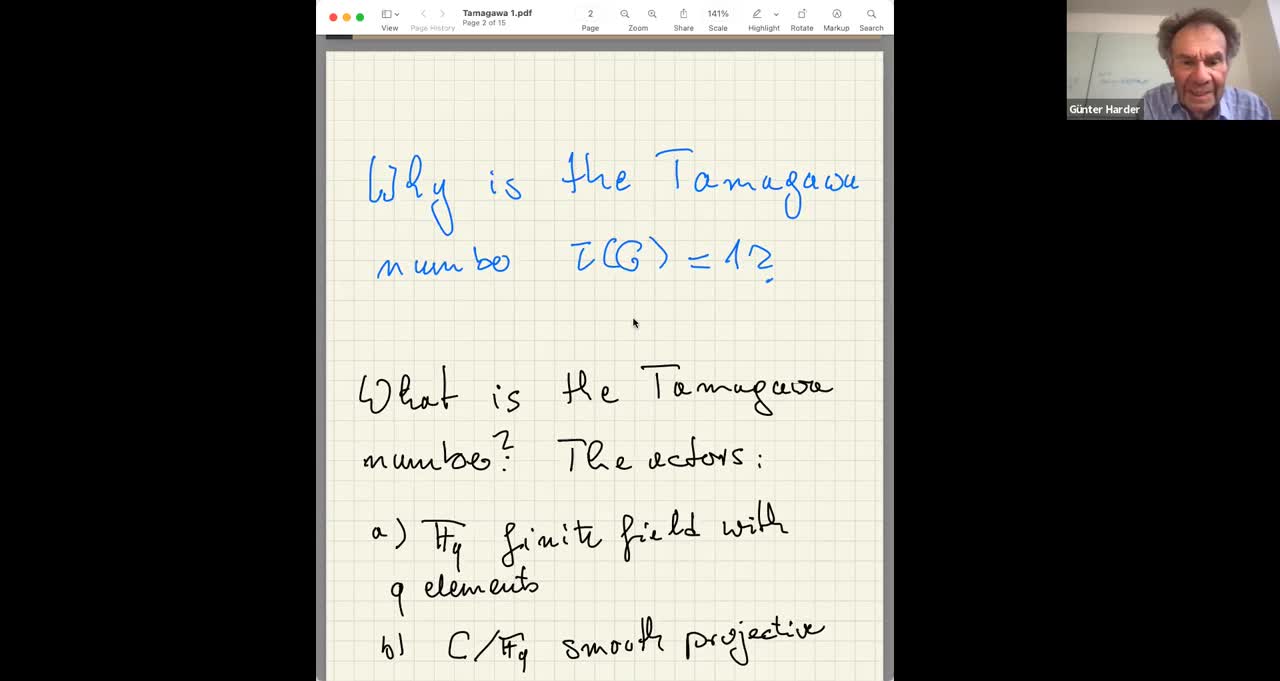 Tamagawa 1.pdf
Page 2 of 15
2
141%
View
Page History
Page
Zoom
Share
Scale
Highlight
Rotate
Markup
Search
Günter Harder
Why is the Tamagawa
number τ(G) = 1?
What is the Tamagawa
number? The actors:
a) 𝔽q finite field with
q elements
b) C/𝔽q smooth projective